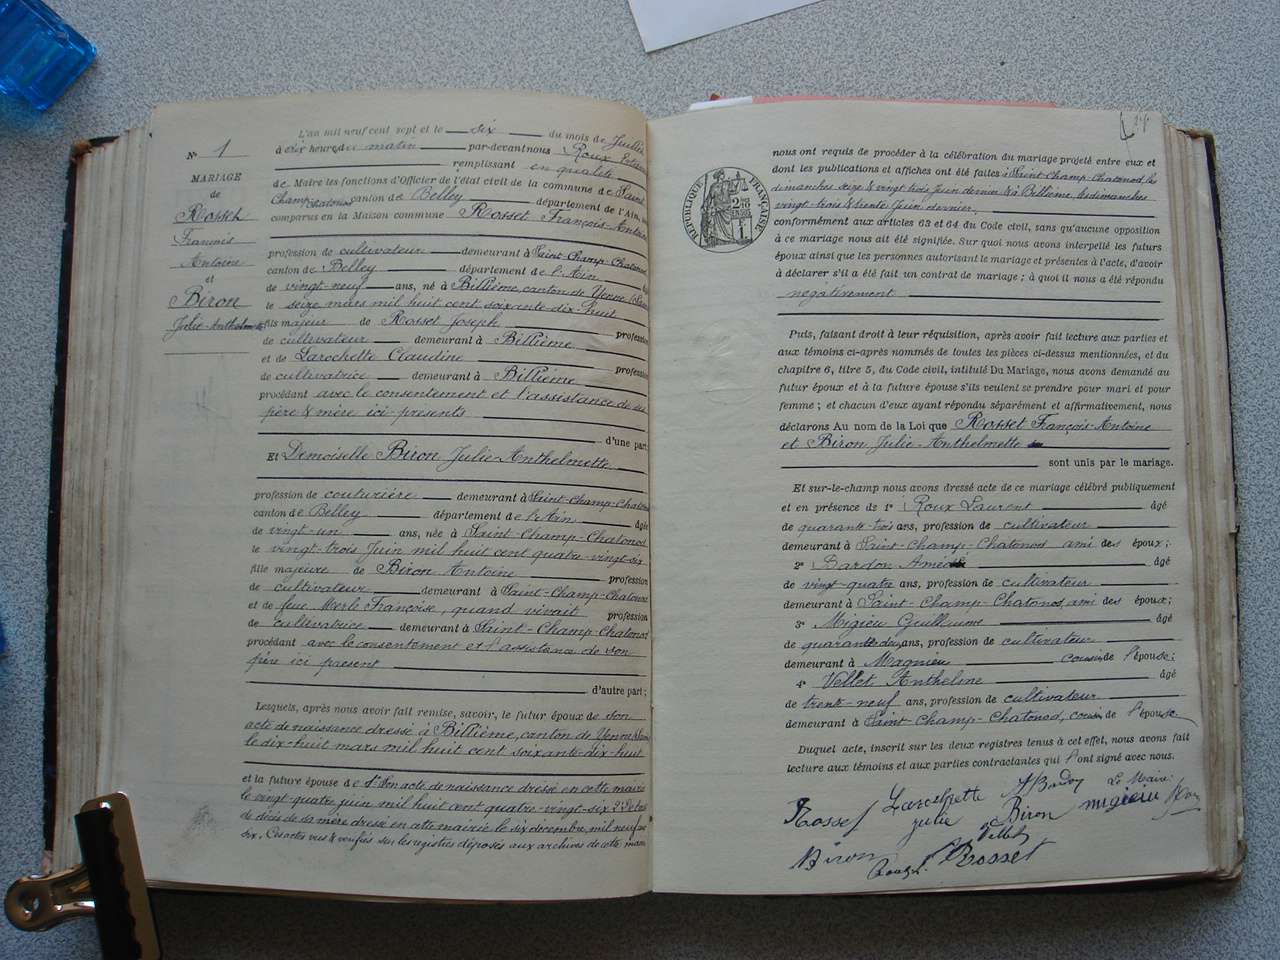 N° 1
MARIAGE
de
Rosset
François
Antoine
et
Biron
Julie-Anthelmette
L'an mil neuf cent sept et le six du mois de Juillet
à dix heures du matin par-devant nous Roux
remplissant en qualité
de Maire les fonctions d'Officier de l'état civil de la commune de Saint
Champ-Chatonod canton de Belley département de l'Ain,
comparus en la Maison commune Rosset François-Antoine
profession de cultivateur demeurant à Saint-Champ-Chatonod
canton de Belley département de l'Ain
de vingt-neuf ans, né à Billième, canton de Yenne
le seize mars mil huit cent soixante-dix-huit
fils majeur de Rosset Joseph profession
de cultivateur demeurant à Billième
et de Larochette Claudine profession
de cultivatrice demeurant à Billième
procédant avec le consentement et l'assistance de ses
père & mère ici présents
d'une part
Et Demoiselle Biron Julie-Anthelmette
profession de couturière demeurant à Saint-Champ-Chatonod
canton de Belley département de l'Ain âgée
de vingt-un ans, née à Saint-Champ-Chatonod
le vingt-trois Juin mil huit cent quatre-vingt-six
fille majeure de Biron Antoine profession
de cultivateur demeurant à Saint-Champ-Chatonod
et de feue Merle Françoise, quand vivait profession
de cultivatrice demeurant à Saint-Champ-Chatonod
procédant avec le consentement et l'assistance de son
père ici présent
d'autre part ;
Lesquels, après nous avoir fait remise, savoir, le futur époux de son
acte de naissance dressé à Billième, canton de Yenne
le dix-huit mars mil huit cent soixante-dix-huit
et la future épouse de 1° son acte de naissance dressé en cette mairie
le vingt-quatre juin mil huit cent quatre-vingt-six 2° De l'acte
de décès de sa mère dressé en cette mairie le six décembre, mil neuf cent
six. Ces actes vus & vérifiés sur les registres déposés aux archives de cette mairie
RÉPUBLIQUE FRANÇAISE
nous ont requis de procéder à la célébration du mariage projeté entre eux et
dont les publications et affiches ont été faites à Saint-Champ-Chatonod les
dimanches seize & vingt trois Juin dernier & à Billième, les dimanches
vingt-trois & trente Juin dernier,
conformément aux articles 63 et 64 du Code civil, sans qu'aucune opposition
à ce mariage nous ait été signifiée. Sur quoi nous avons interpellé les futurs
époux ainsi que les personnes autorisant le mariage et présentes à l'acte, d'avoir
à déclarer s'il a été fait un contrat de mariage ; à quoi il nous a été répondu
négativement
Puis, faisant droit à leur réquisition, après avoir fait lecture aux parties et
aux témoins ci-après nommés de toutes les pièces ci-dessus mentionnées, et du
chapitre 6, titre 5, du Code civil, intitulé Du Mariage, nous avons demandé au
futur époux et à la future épouse s'ils veulent se prendre pour mari et pour
femme ; et chacun d'eux ayant répondu séparément et affirmativement, nous
déclarons Au nom de la Loi que Rosset François-Antoine
et Biron Julie-Anthelmette
sont unis par le mariage.
Et sur-le-champ nous avons dressé acte de ce mariage célébré publiquement
et en présence de 1° Roux Laurent âgé
de quarante-trois ans, profession de cultivateur
demeurant à Saint-Champ-Chatonod ami des époux ;
2° Bardon Amédé âgé
de vingt-quatre ans, profession de cultivateur
demeurant à Saint-Champ-Chatonod, ami des époux ;
3° Migieu Guillaume âgé
de quarante-deux ans, profession de cultivateur
demeurant à Magnieu cousin de l'épouse ;
4° Vellet Anthelme âgé
de trente-neuf ans, profession de cultivateur
demeurant à Saint-Champ-Chatonod, cousin de l'épouse
Duquel acte, inscrit sur les deux registres tenus à cet effet, nous avons fait
lecture aux témoins et aux parties contractantes qui l'ont signé avec nous.
Rosset Larochette A Bardon Le Maire:
julie Biron migieu Roux
Vellet
Biron Roux L. Rosset